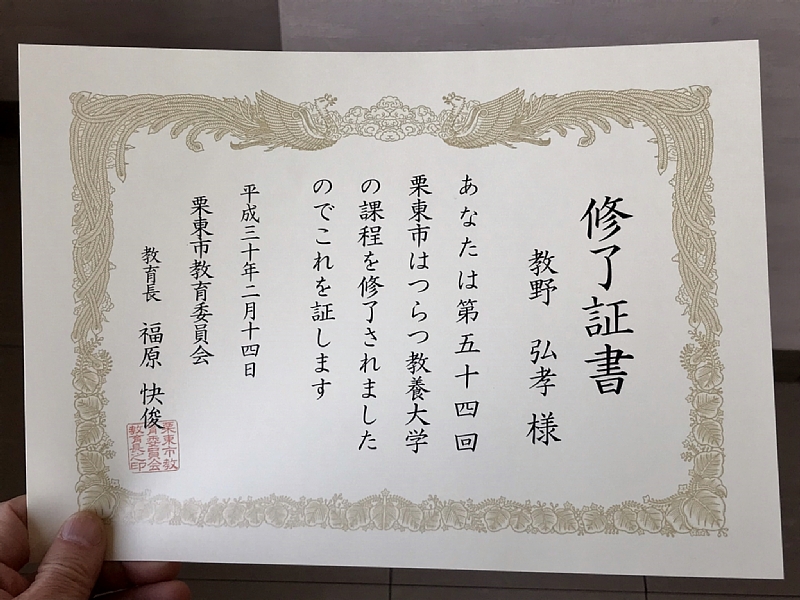 修了証書
教野 弘孝 様
あなたは第五十四回
栗東市はつらつ教養大学
の課程を修了されました
のでこれを証します
平成三十年二月十四日
栗東市教育委員会
教育長 福原 快俊
栗東市教
育委員会
教育長之印